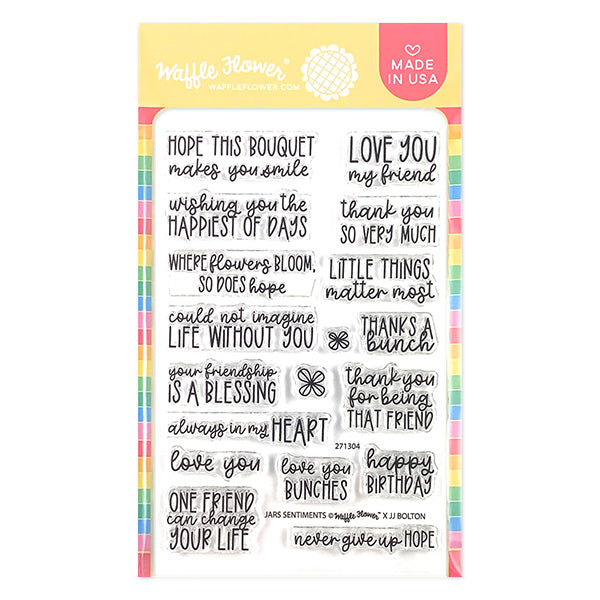 Waffle Flower®
WAFFLEFLOWER.COM
MADE
IN USA
HOPE THIS BOUQUET
makes you smile
LOVE YOU
my friend
wishing you the
HAPPIEST OF DAYS
thank you
SO VERY MUCH
WHERE flowers BLOOM,
SO DOES hope
LITTLE THINGS
matter most
could not imagine
LIFE WITHOUT YOU
THANKS A
bunch
your friendship
IS A BLESSING
thank you
for being
THAT FRIEND
always in my HEART
271304
love you
love you
BUNCHES
happy
BIRTHDAY
ONE FRIEND
can change
YOUR LIFE
JARS SENTIMENTS © Waffle Flower™ X JJ BOLTON
never give up HOPE